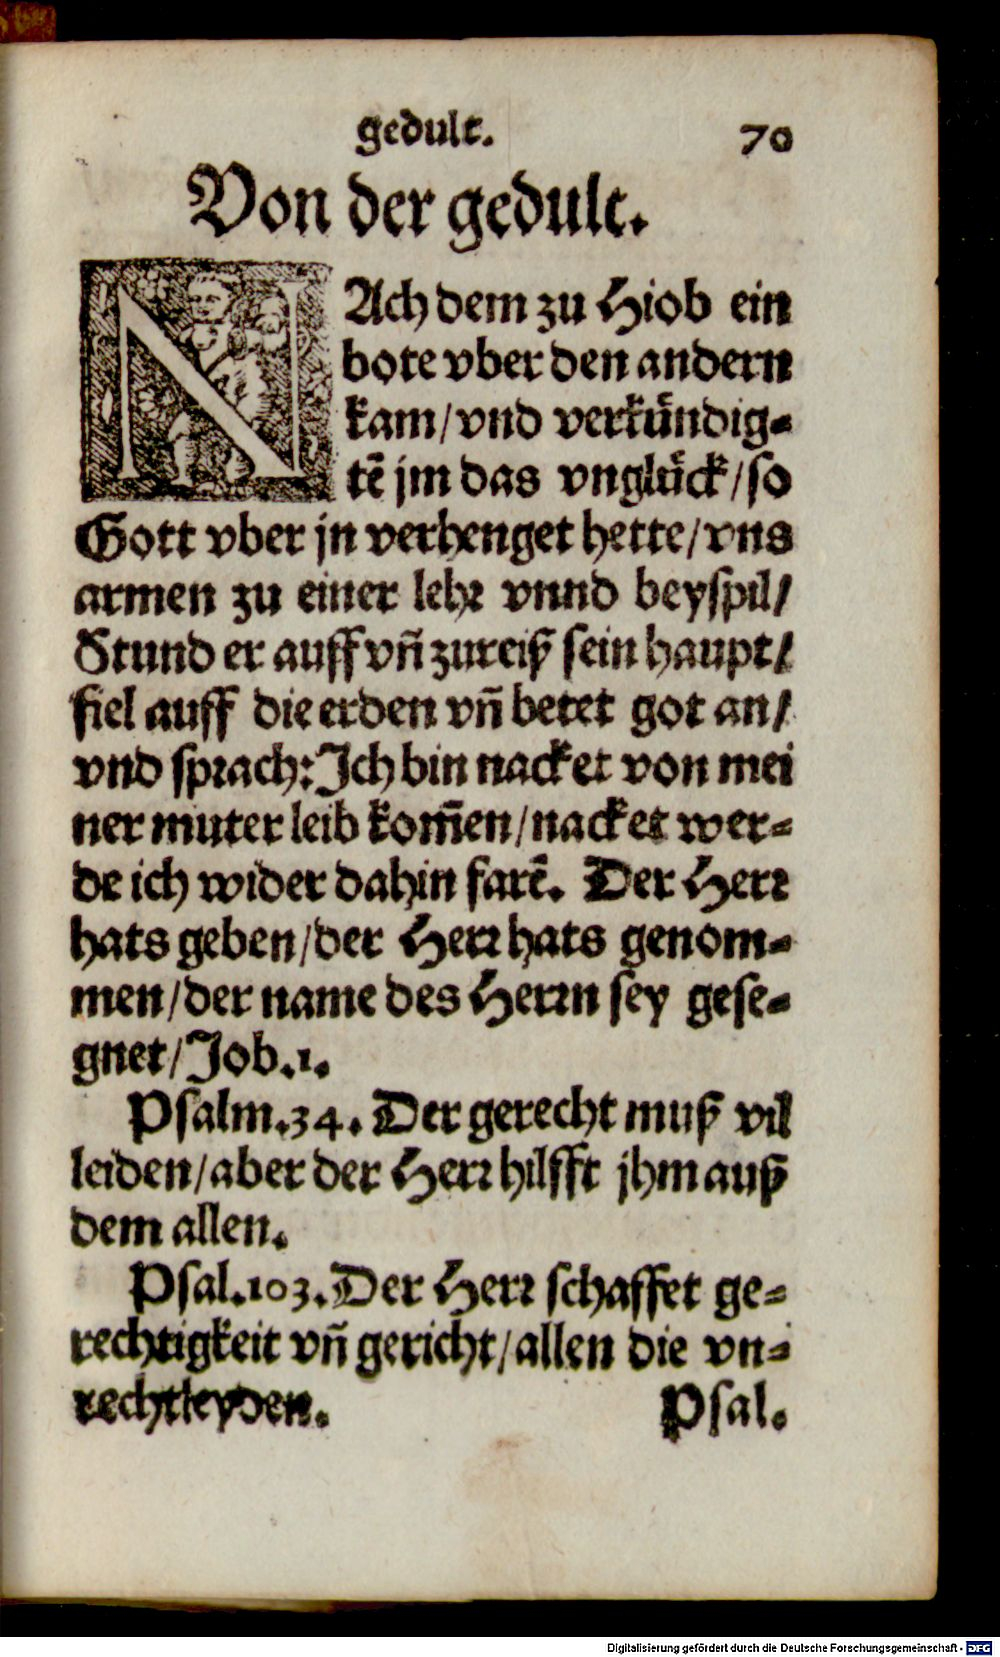 gedult. 70
Von der gedult.
NAch dem zu Hiob ein
bote vber den andern
kam/vnd verkuͤndig⸗
tē jm das vngluͤck/so
Gott vber jn verhenget hette/vns
armen zu einer lehr vnnd beyspil/
Stund er auff vñ zureiß sein haupt/
fiel auff die erden vñ betet got an/
vnd sprach: Ich bin nacket von mei
ner muter leib kom̄en/nacket wer⸗
de ich wider dahin farē. Der Herr
hats geben/der Herr hats genom⸗
men/der name des Herrn sey gese⸗
gnet/Job.1.
Psalm.34. Der gerecht muß vil
leiden/aber der Herr hilfft jhm auß
dem allen.
Psal.103. Der Herr schaffet ge⸗
rechtigkeit vñ gericht/allen die vn⸗
recht leyden. Psal.
Digitalisierung gefördert durch die Deutsche Forschungsgemeinschaft - DFG